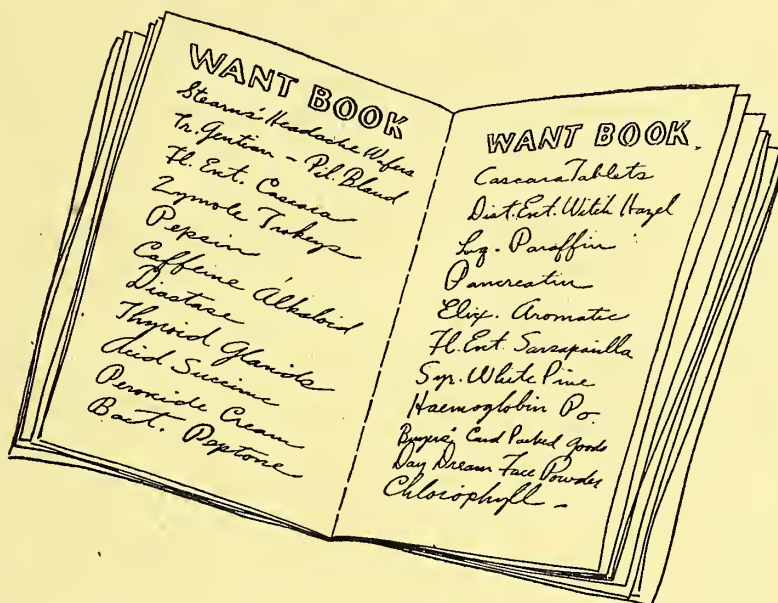 WANT BOOK
Stearns' Headache Wafers
Tr. Gentian - Pil. Blaud
Fl. Ext. Cascara
Zymole Trokeys
Pepsin
Caffeine Alkaloid
Diastase
Thyroid Glands
Acid Succinic
Peroxide Cream
Bact. Peptone
WANT BOOK.
Cascara Tablets
Dist. Ext. Witch Hazel
Liq. Paraffin
Pancreatin
Elix. Aromatic
Fl. Ext. Sarsaparilla
Syr. White Pine
Haemoglobin Po.
Buyers' Card Packed goods
Day Dream Face Powder
Chlorophyll -